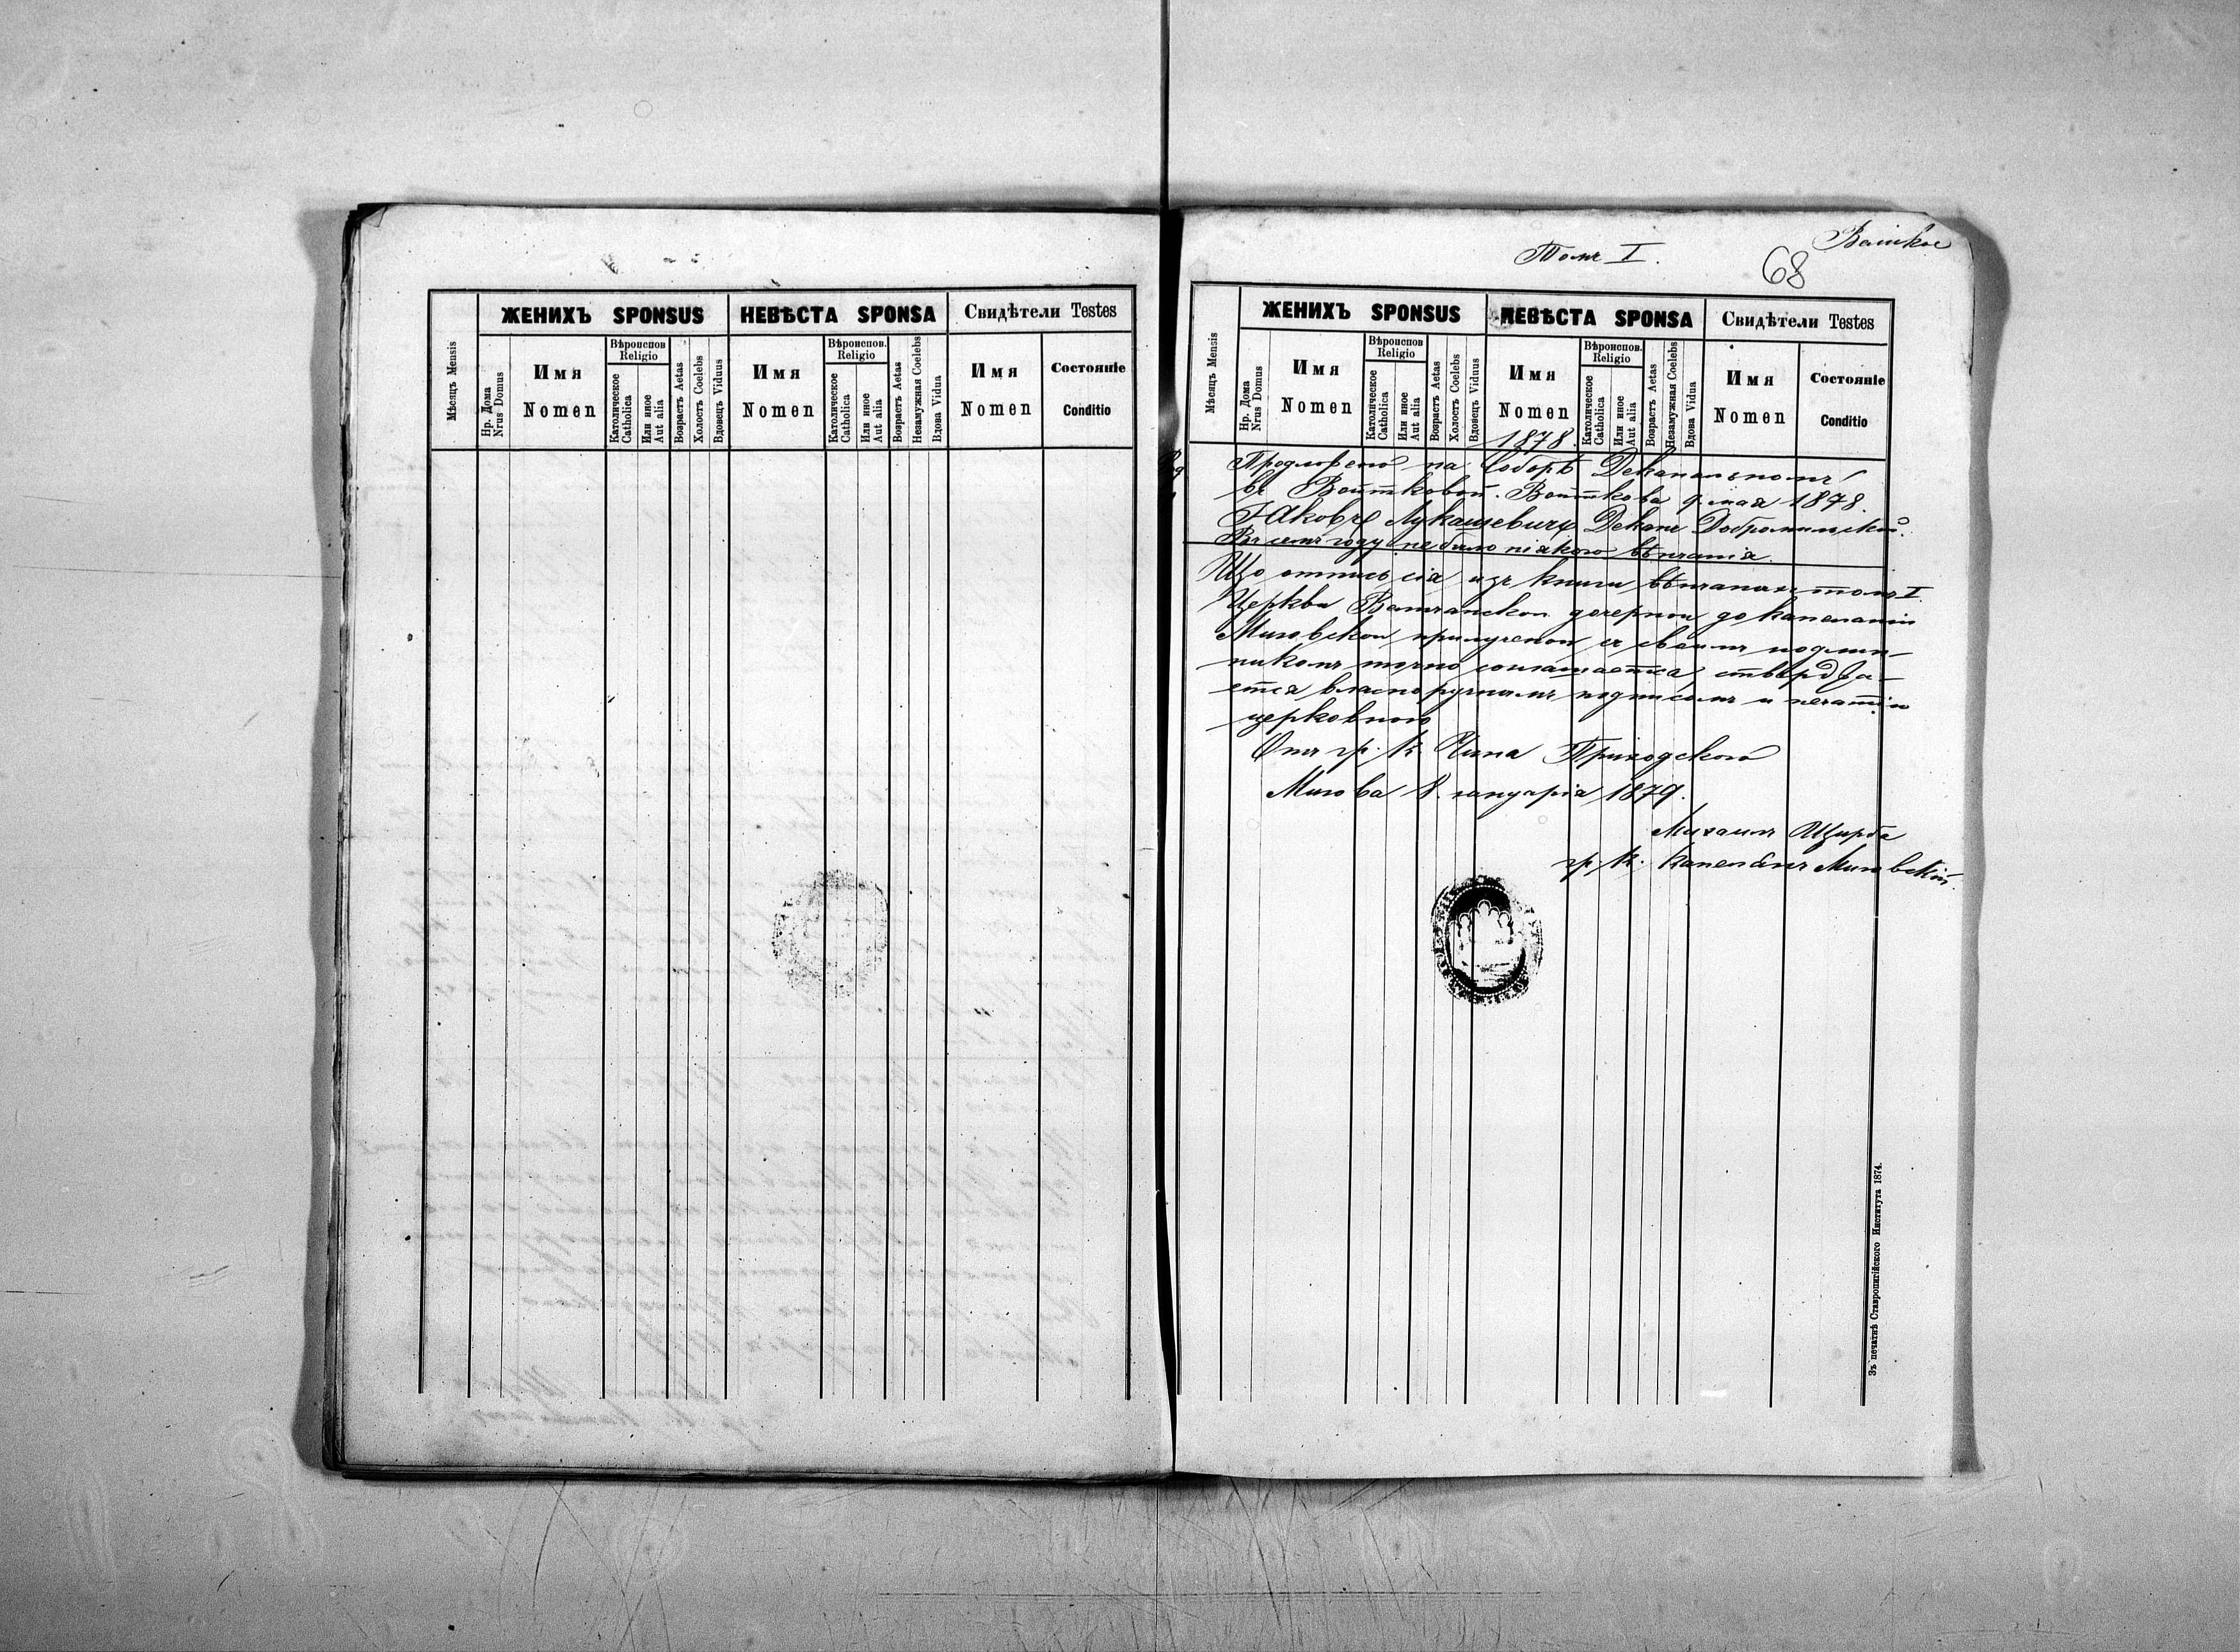 ЖЕНИХЪ SPONSUS НЕВѢСТА SPONSA Свидѣтели Testes
Мѣсяцъ Mensis
Нр. Дома
Nrus Domus
Имя
Nomen
Вѣроиспов
Religio
Католическое
Catholica
Или иное
Aut alia
Возрастъ Aetas
Холостъ Coelebs
Вдовецъ Viduus
Имя
Nomen
Вѣроиспов.
Religio
Католическое
Catholica
Или иное
Aut alia
Возрастъ Aetas
Незамужная Coelebs
Вдова Vidua
Имя
Nomen
Состояніе
Conditio
Томъ I.
68
ЖЕНИХЪ SPONSUS НЕВѢСТА SPONSA Свидѣтели Testes
Мѣсяцъ Mensis
Нр. Дома
Nrus Domus
Имя
Nomen
Вѣроиспов
Religio
Католическое
Catholica
Или иное
Aut alia
Возрастъ Aetas
Холостъ Coelebs
Вдовецъ Viduus
Имя
Nomen
Вѣроиспов.
Religio
Католическое
Catholica
Или иное
Aut alia
Возрастъ Aetas
Незамужная Coelebs
Вдова Vidua
Имя
Nomen
Состояніе
Conditio
1878.
Предложено на Соборѣ Деканальномъ
въ Войтковой. Войткова 9. мая 1878.
Іаковъ Лукашевичъ Деканъ Добромильскій.
Въ семъ году не былоніякого вѣнчанія.
Що отпись сія изъ книги вѣнчаныхъ томъ I.
Церкви дочерной до капеланіи
Миговской прилученой съ своимъ подлин-
никомъ точно соглашается, ствердза-
ется власноручнымъ подписомъ и печатію
церковною
Отъ гр. к. Чина Приходского
Мигова 8. януарія 1879.
Михаилъ Щирба
гр. к. капеланъ Миговскій.
Зъ печатнѣ Ставропигійского Института 1874.